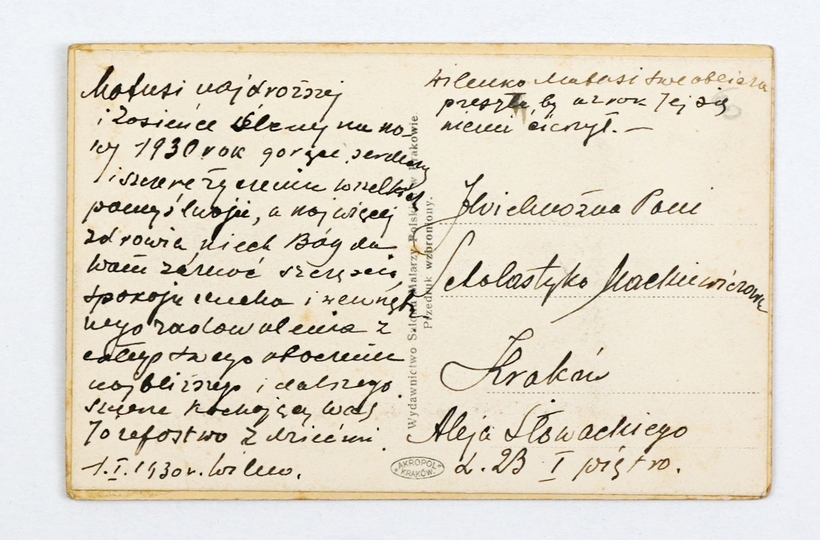 Matusi najdroższej
i Zosieńce ślemy na no-
wy 1930 rok gorące, serdeczne
i szczere życzenia wszelkiej
pomyślności, a najwięcej
zdrowia niech Bóg da
Wam zaznać szczęścia,
spokoju ducha i zewnętrz
nego zadowolenia z
całego swego otoczenia
najbliższego i dalszego.
Szczerze kochający Was
Józefostwo z dziećmi.
1.I.1930 r. Wilno.
Wydawnictwo Salonu Malarzy Polskich w Krakowie
Przedruk wzbroniony.
AKROPOL
KRAKÓW
Matusi swe oblicze
przeszła, by wzrok Jej się
niemi cieszył. —
JWielmożna Pani
Scholastyka Mackiewiczowa
Kraków
Aleja Słowackiego
L. 23 I piętro.